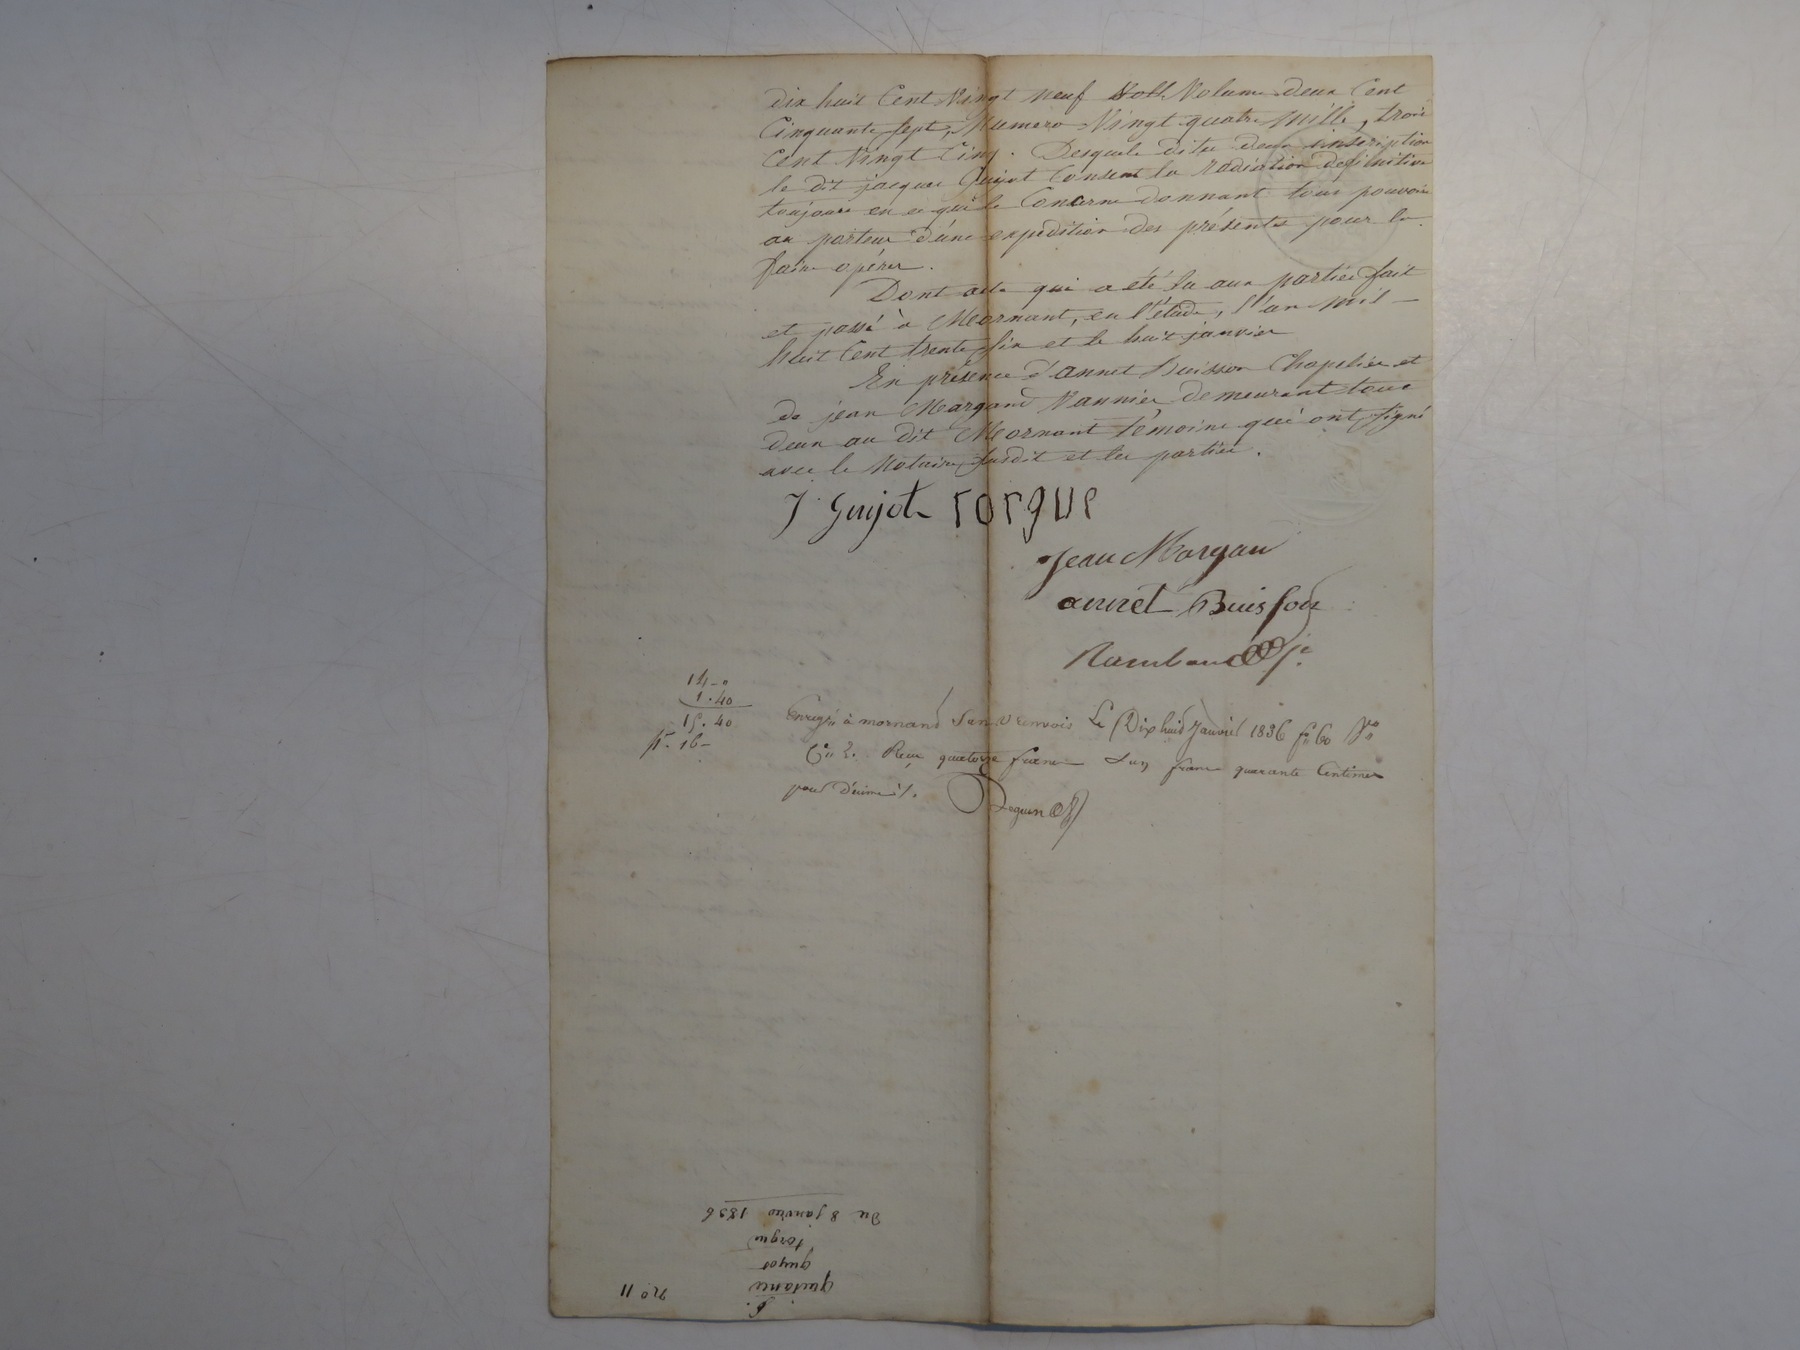 dix huit Cent Vingt neuf Volume deux Cent
Cinquante sept, Numero Vingt quatre mille, trois
Cent Vingt Cinq. Desquels dites deux inscription
le dit jacques Guyot Consent la radiation definitive
toujours en ce qui le Concerne donnant tous pouvoir
au porteur d'une expédition des présentes pour la
faire opérer.
Dont acte qui a été lu aux parties fait
et passé à Mornant, en l'étude, l'an mil
huit Cent trente six et le huit janvier
En présence d'annet Buisson Chapelier et
de jean Margand Vannier demeurant tous
deux au dit Mornant témoins qui ont signé
avec le Notaire susdit et les parties.
J Guyot torgue
Jean Morgau
annet Buisson
Rambaud
14 - "
1 . 40
15 . 40
16 -
Enregtré à mornand Sans renvois Le Dix huit Janvier 1836 fo 60 Vo
Reçu quatorze francs & un franc quarante Centimes
pour Décime
Deguin
no 11
quitance
guyot
torgue
Du 8 janvier 1836